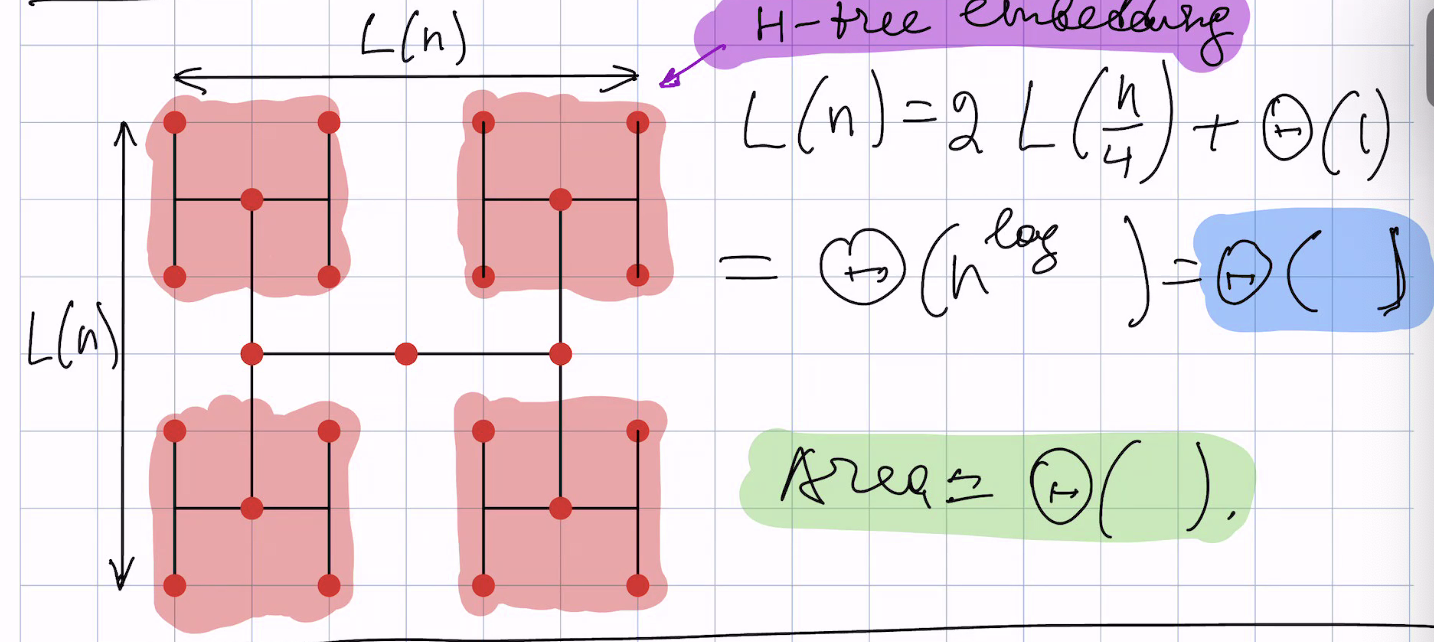 H-tree embedding
L(n)
L(n)
L(n) = 2 L(n/4) + Θ(1)
= Θ(n^log ) = Θ( )
Area = Θ( ).